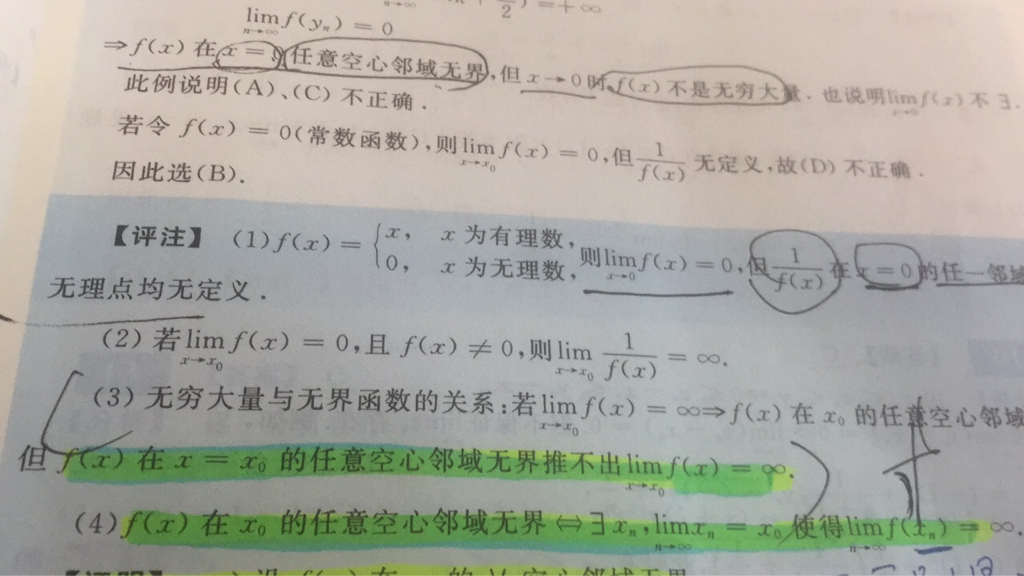 lim f(yₙ) = 0
n→∞
⇒f(x) 在 x = 0 任意空心邻域无界,但 x→0 时,f(x) 不是无穷大量. 也说明 lim f(x) 不 ∃.
x→0
此例说明(A)、(C) 不正确.
若令 f(x) = 0(常数函数),则 lim f(x) = 0,但 1/f(x) 无定义,故(D) 不正确.
x→x₀
因此选(B).
【评注】 (1) f(x) = { x, x 为有理数, 0, x 为无理数, 则 lim f(x) = 0,但 1/f(x) 在 x = 0 的任一邻域
x→0
无理点均无定义.
(2) 若 lim f(x) = 0,且 f(x) ≠ 0,则 lim 1/f(x) = ∞.
x→x₀ x→x₀
(3) 无穷大量与无界函数的关系:若 lim f(x) = ∞⇒f(x) 在 x₀ 的任意空心邻域
x→x₀
但 f(x) 在 x = x₀ 的任意空心邻域无界推不出 lim f(x) = ∞.
x→x₀
(4) f(x) 在 x₀ 的任意空心邻域无界⇔∃ xₙ, lim xₙ = x₀ 使得 lim f(xₙ) = ∞.
n→∞ n→∞